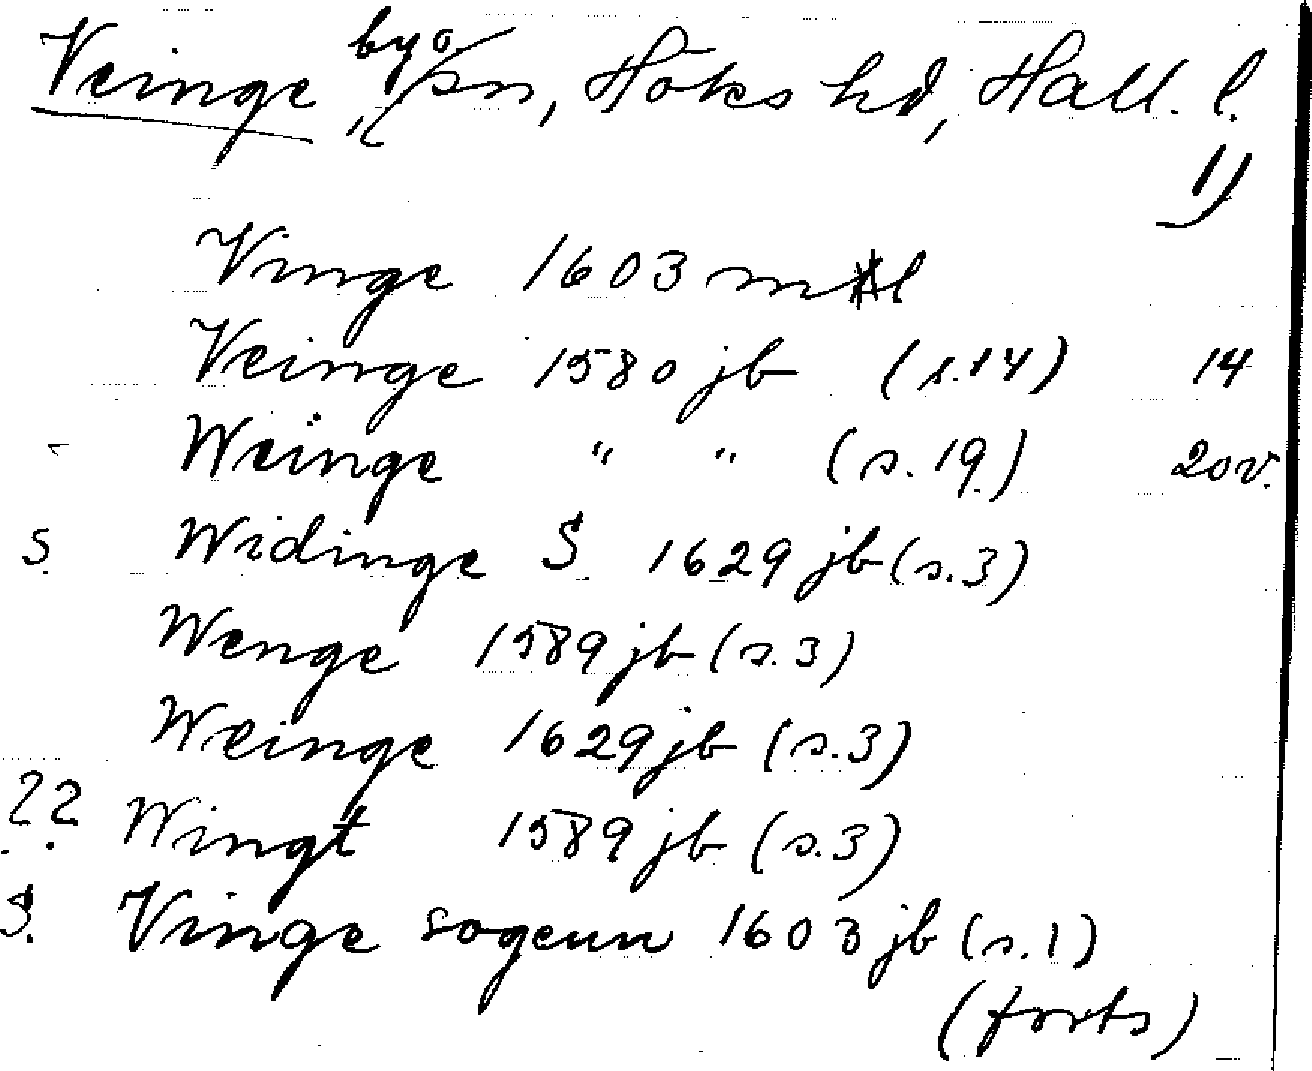 Veinge by o/sn, Höks hd, Hall. l.
1)
Vinge 1603 mtl
Veinge 1580 jb (s.14) 14
Weinge " " (s.19) 20v.
S. Widinge S 1629 jb (s.3)
Wenge 1589 jb (s.3)
Weinge 1629 jb (s.3)
?? Wingt 1589 jb (s.3)
S. Vinge sogenn 1603 jb (s.1)
(forts)